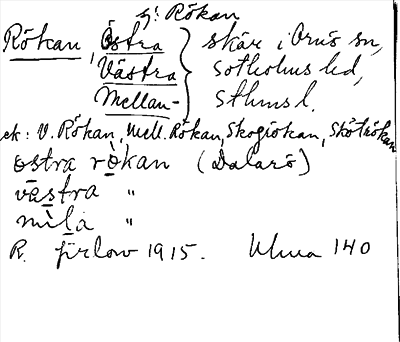 ej: Rökan
Rökan, Östra } skär i Ornö sn,
Västra } Sotholms hd,
Mellan- } Sthms l.
ek: V. Rökan, Mell. Rökan, Skogsökan, Skötrökan
östra rökan (Dalarö)
västra "
mila "
R. 1915. Uhua 140